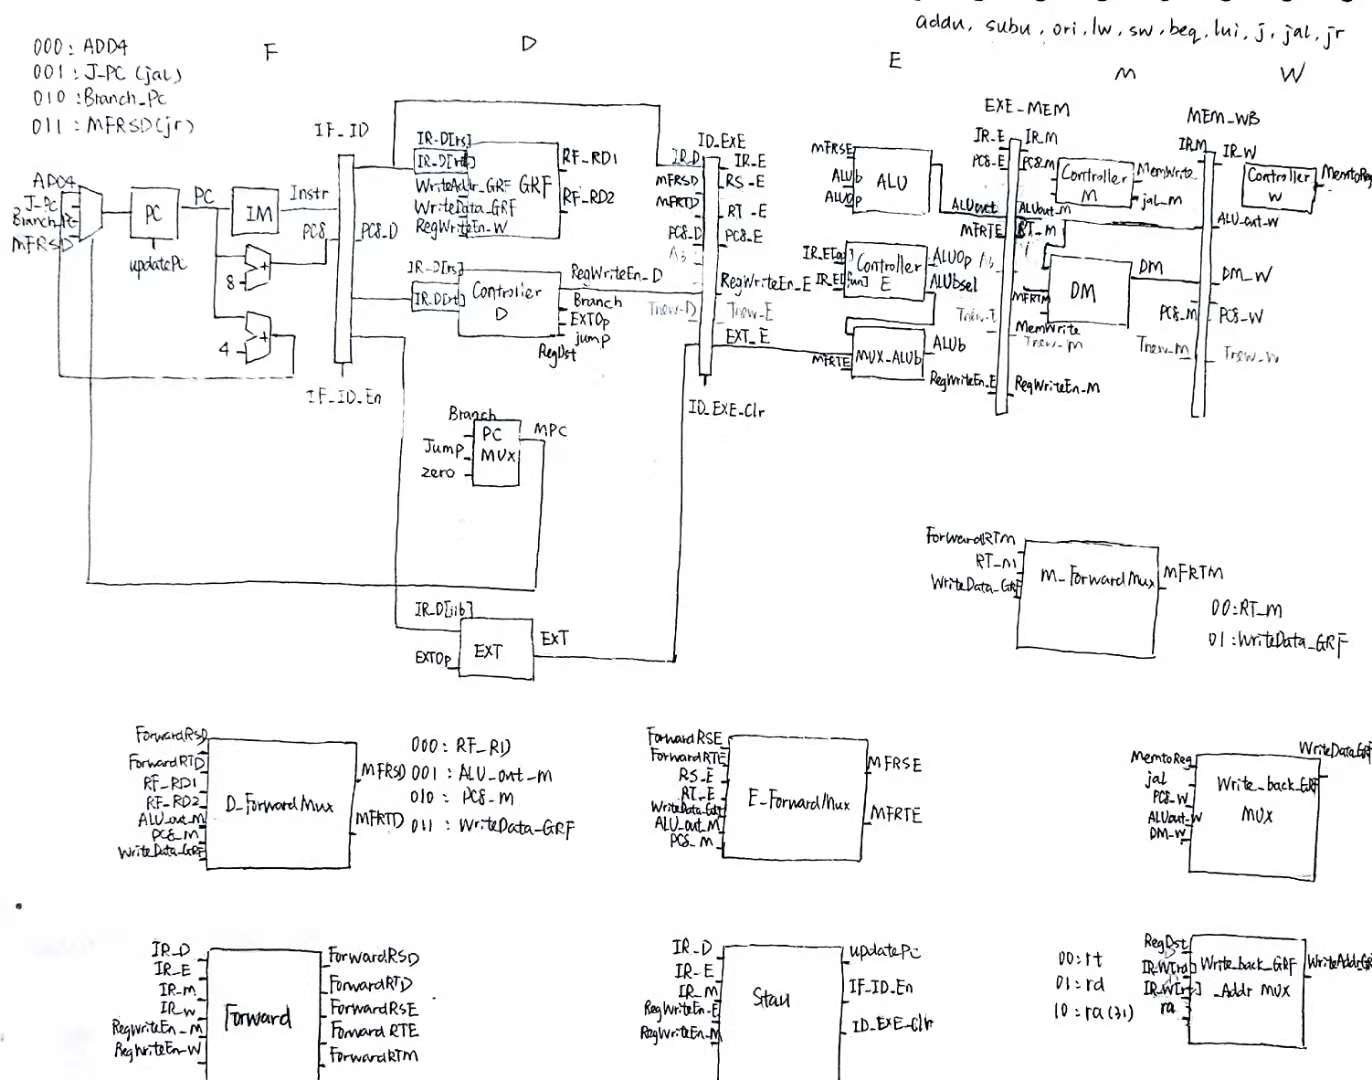 addu, subu, ori, lw, sw, beq, lui, j, jal, jr
000: ADD4
001: J_PC (jal)
010: Branch_Pc
011: MFRSD(jr)
F
D
E
M
W
IF_ID
ADD4
J_PC
Branch_Pc
MFRSD
PC
updatePc
PC
IM
Instr
PC8
8
+
4
+
PC8_D
IF_ID_En
IR_D[rs]
WriteAddr_GRF
WriteData_GRF
RegWriteEn_W
GRF
RF_RD1
RF_RD2
IR_D[rs]
IR_D[rt]
Controller
D
RegWriteEn_D
Branch
EXTOp
jump
RegDst
Branch
Jump
zero
PC
MUX
MPC
IR_D[iib]
EXTOp
EXT
EXT
ID_EXE
IR_D
MFRSD
MFRTD
PC8_D
Tnew_D
IR_E
RS_E
RT_E
PC8_E
RegWriteEn_E
Tnew_E
EXT_E
ID_EXE_Clr
MFRSE
ALUb
ALUOp
ALU
ALUout
Controller
E
ALUOp
ALUbsel
MFRTE
MUX_ALUb
ALUb
EXE_MEM
IR_E
PC8_E
MFRTE
RegWriteEn_E
IR_M
PC8_M
ALUout_M
RT_M
MFRTM
MemWrite
Tnew_M
RegWriteEn_M
Controller
M
MemWrite
jal_M
DM
DM
MEM_WB
IR_M
PC8_M
Tnew_M
IR_W
ALU_out_W
DM_W
PC8_W
Tnew_W
Controller
W
MemtoReg
ForwardRTM
RT_M
WriteData_GRF
M_ForwardMux
MFRTM
00:RT_M
01:WriteData_GRF
ForwardRSD
ForwardRTD
RF_RD1
RF_RD2
ALU_out_M
PC8_M
WriteData_GRF
D_ForwardMux
MFRSD
MFRTD
000: RF_RD
001: ALU_out_M
010: PC8_M
011: WriteData_GRF
ForwardRSE
ForwardRTE
RS_E
RT_E
ALU_out_M
PC8_M
E_ForwardMux
MFRSE
MFRTE
MemtoReg
jal
PC8_W
ALUout_W
DM_W
Write_back_GRF
MUX
WriteData_GRF
IR_D
IR_E
IR_M
IR_W
RegWriteEn_M
RegWriteEn_W
Forward
ForwardRSD
ForwardRTD
ForwardRSE
ForwardRTE
ForwardRTM
IR_D
IR_E
IR_M
RegWriteEn_E
RegWriteEn_M
Stall
updatePc
IF_ID_En
ID_EXE_Clr
00:rt
01:rd
10:ra(31)
RegDst
ra
Write_back_GRF
_Addr MUX
WriteAddrGR